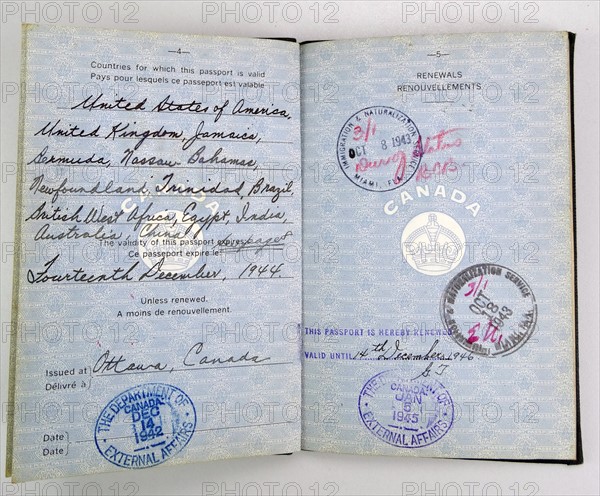 —4—
Countries for which this passport is valid
Pays pour lesquels ce passeport est valable
United States of America,
United Kingdom, Jamaica,
Bermuda, Nassau Bahamas,
Newfoundland, Trinidad, Brazil,
British West Africa, Egypt, India,
Australia, China
The validity of this passport expires:
Ce passeport expire le:
Fourteenth December, 1944.
Unless renewed.
A moins de renouvellement.
Issued at Ottawa, Canada
Délivré à
THE DEPARTMENT OF EXTERNAL AFFAIRS
CANADA
DEC
14
1942
Date
Date
—5—
RENEWALS
RENOUVELLEMENTS
IMMIGRATION & NATURALIZATION SERVICE
MIAMI, FLA.
3/1
OCT 8 1943
CANADA
& NATURALIZATION SERVICE
3/1
OCT
8
1943
THIS PASSPORT IS HEREBY RENEWED
VALID UNTIL 14th December 1946
THE DEPARTMENT OF EXTERNAL AFFAIRS
CANADA
JAN
1945
PHOTO12